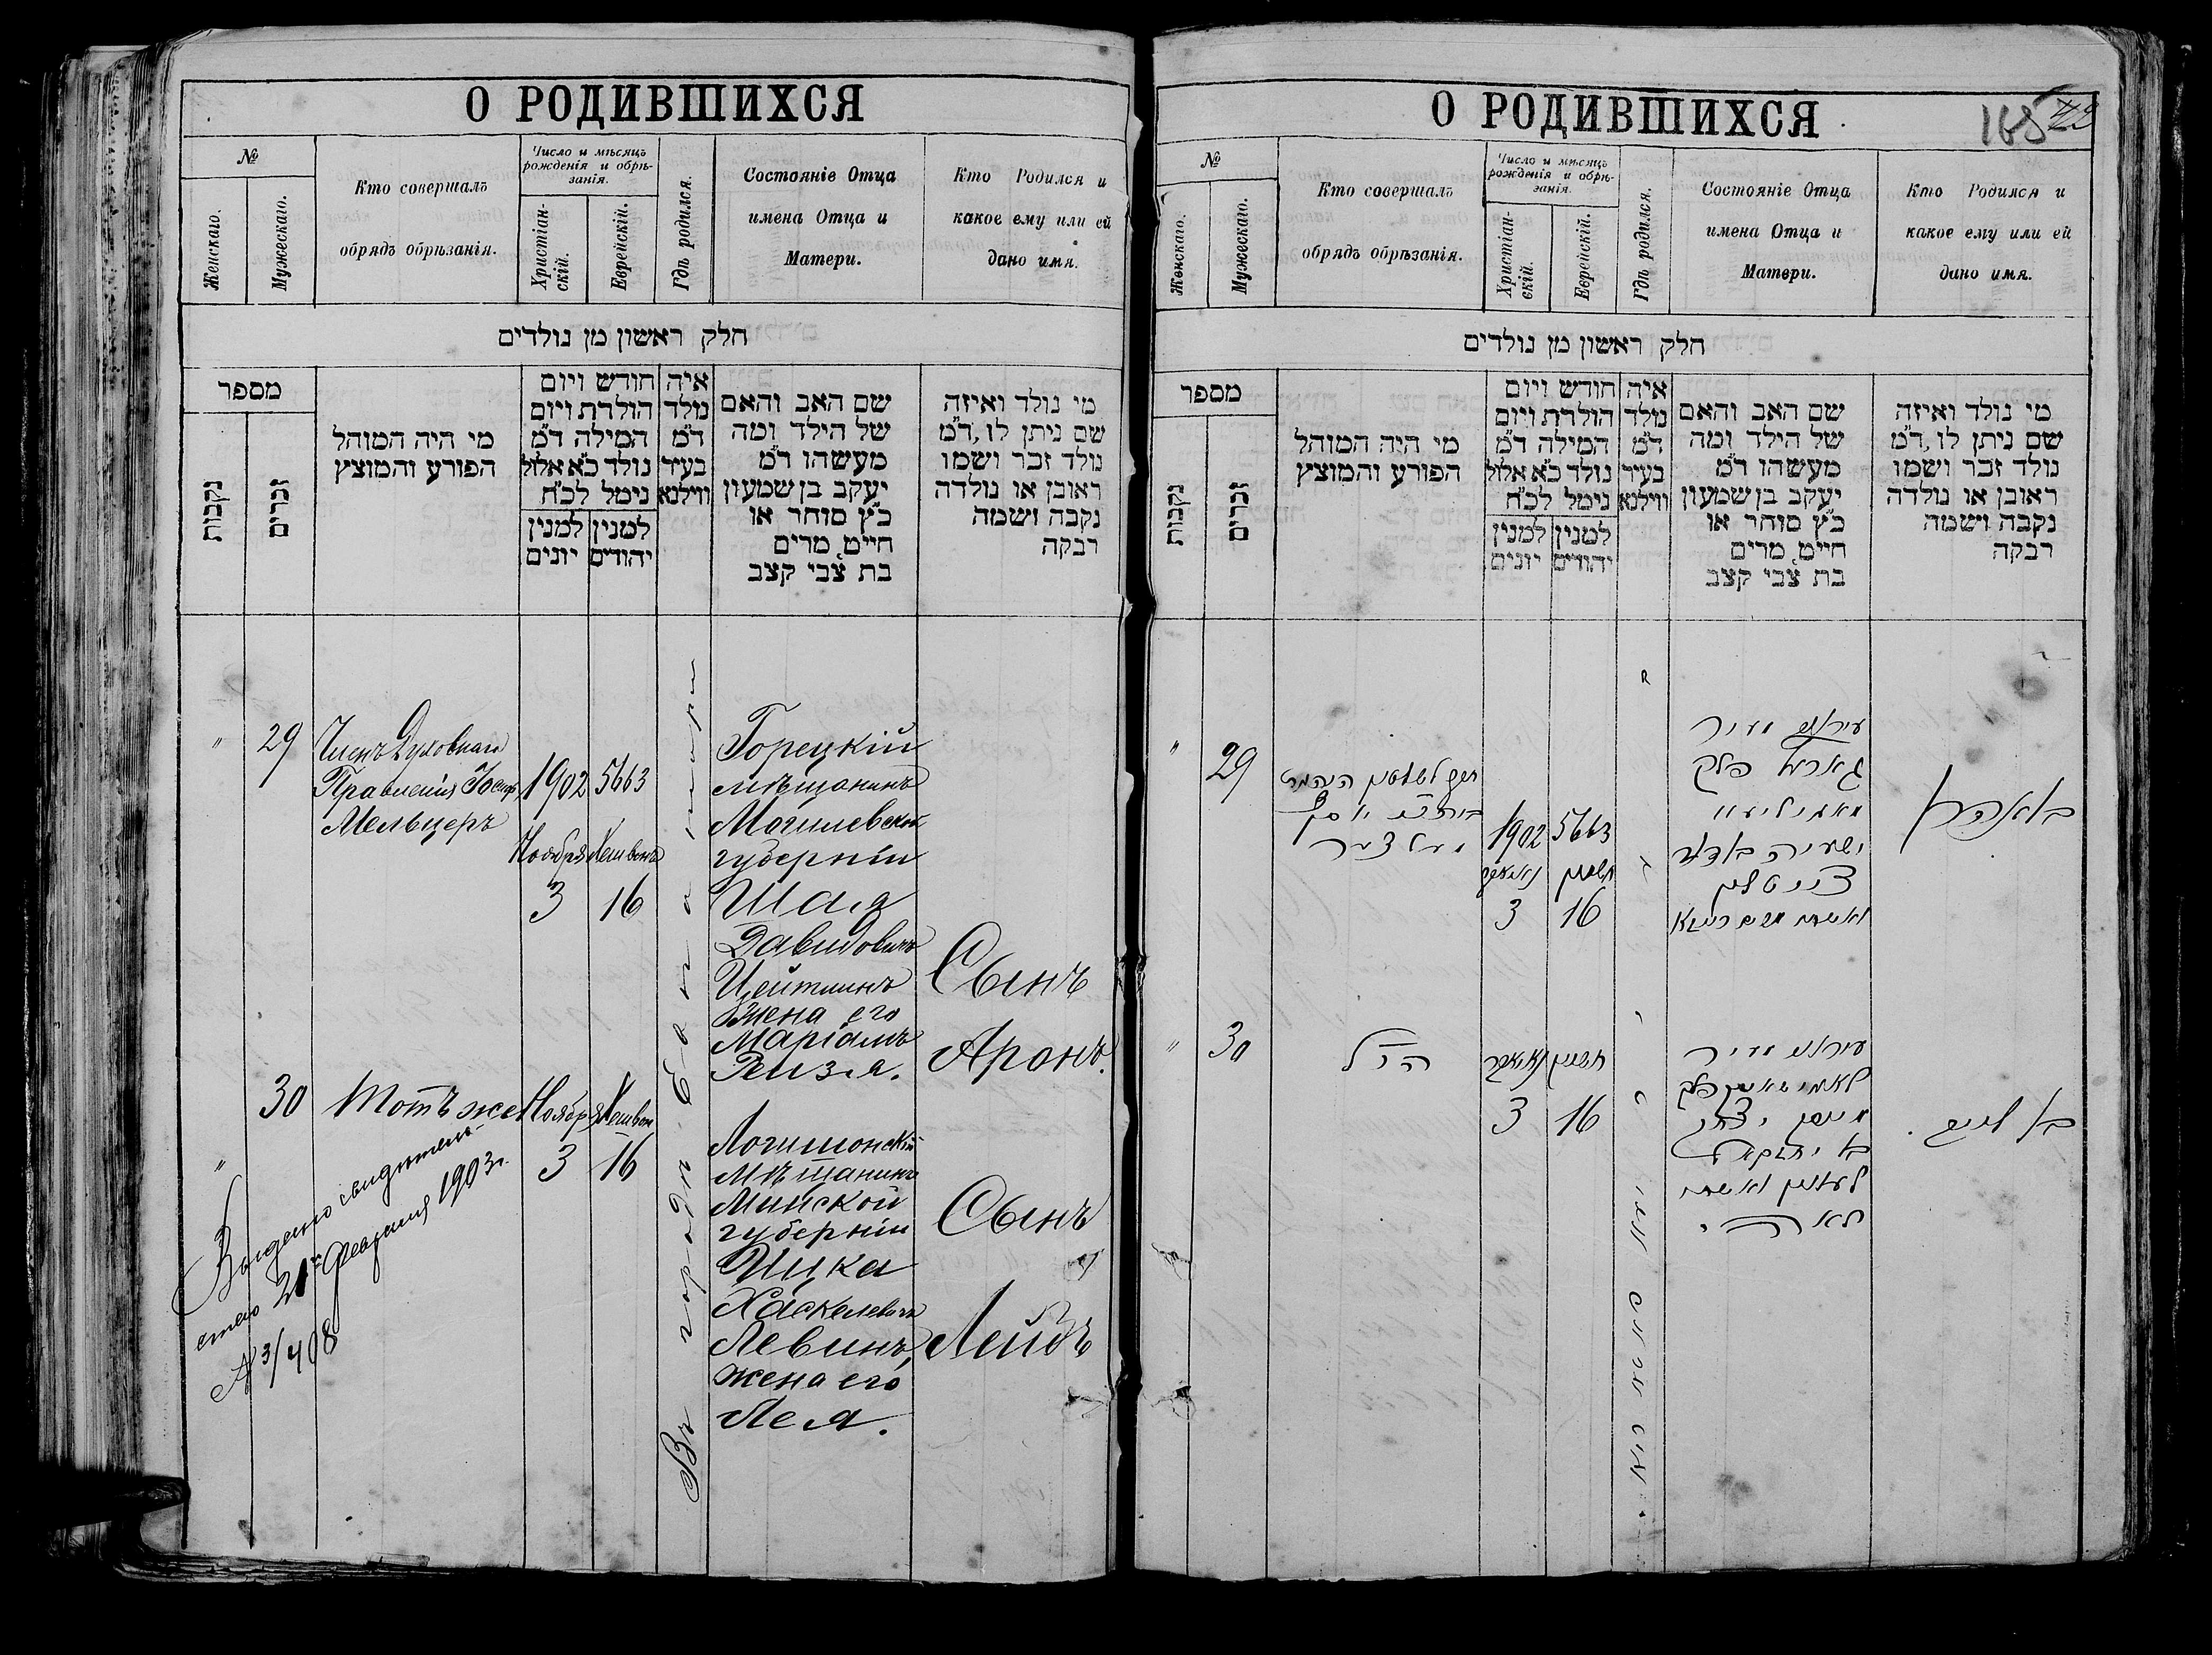 О РОДИВШИХСЯ
№
Женскаго.
Мужескаго.
Кто совершалъ
обрядъ обрѣзанія.
Число и мѣсяцъ
рожденія и обрѣ-
занія.
Христіан-
скій.
Еврейскій.
Гдѣ родился.
Состояніе Отца
имена Отца и
Матери.
Кто Родился и
какое ему или ей
дано имя.
חלק ראשון מן נולדים
מספר
נקבות
זכרים
מי היה המוהל
הפורע והמוצץ
חודש ויום
הולדת ויום
המילה ד״מ
נולד כ״א אלול
נימל לכ״ח
למנין
יונים
למנין
יהודים
איה
נולד
ד״מ
בעיר
ווילנא
שם האב והאם
של הילד ומה
מעשהו ד״מ
יעקב בן שמעון
כ״ץ סוחר או
חייט, מרים
בת צבי קצב
מי נולד ואיזה
שם ניתן לו, ד״מ
נולד זכר ושמו
ראובן או נולדה
נקבה ושמה
רבקה
"
29
Членъ Духовнаго
Правленія Іосифъ
Мельцеръ
1902
Ноября
3
5663
Хешвонъ
16
Въ городѣ Евпаторіи
Горецкій
мѣщанинъ
Могилевской
губерніи
Шая
Давидовичъ
Цейтлинъ
жена его
Маріамъ
Рейзя.
Сынъ
Аронъ.
"
30
Тотъ же
Ноября
3
Хешвон
16
Логишонскій
Мѣщанинъ
Минской
губерніи
Ицка
Хаскелевичъ
Левинъ,
жена его
Лея.
Сынъ
Лейбъ
Выдано свидѣтель-
ство 21го Февраля 1903 г.
№ 3/408
О РОДИВШИХСЯ
168
№
Женскаго.
Мужескаго.
Кто совершалъ
обрядъ обрѣзанія.
Число и мѣсяцъ
рожденія и обрѣ-
занія.
Христіан-
скій.
Еврейскій.
Гдѣ родился.
Состояніе Отца
имена Отца и
Матери.
Кто Родился и
какое ему или ей
дано имя.
חלק ראשון מן נולדים
מספר
נקבות
זכרים
מי היה המוהל
הפורע והמוצץ
חודש ויום
הולדת ויום
המילה ד״מ
נולד כ״א אלול
נימל לכ״ח
למנין
יונים
למנין
יהודים
איה
נולד
ד״מ
בעיר
ווילנא
שם האב והאם
של הילד ומה
מעשהו ד״מ
יעקב בן שמעון
כ״ץ סוחר או
חייט, מרים
בת צבי קצב
מי נולד ואיזה
שם ניתן לו, ד״מ
נולד זכר ושמו
ראובן או נולדה
נקבה ושמה
רבקה
"
29
יוסף
מעלצער
1902
נאיאבר
3
5663
חשון
16
עיראני העיר
פלך
מאהיליעוו
ישעיה
צייטלין
ואשתו מרים רייזא
בן אהרן
"
30
הנ״ל
נאיאבר
3
חשון
16
עיראני העיר
פלך
מינסק יצחק
בן יחזקאל
לעווין ואשתו
לאה
בן לייב.